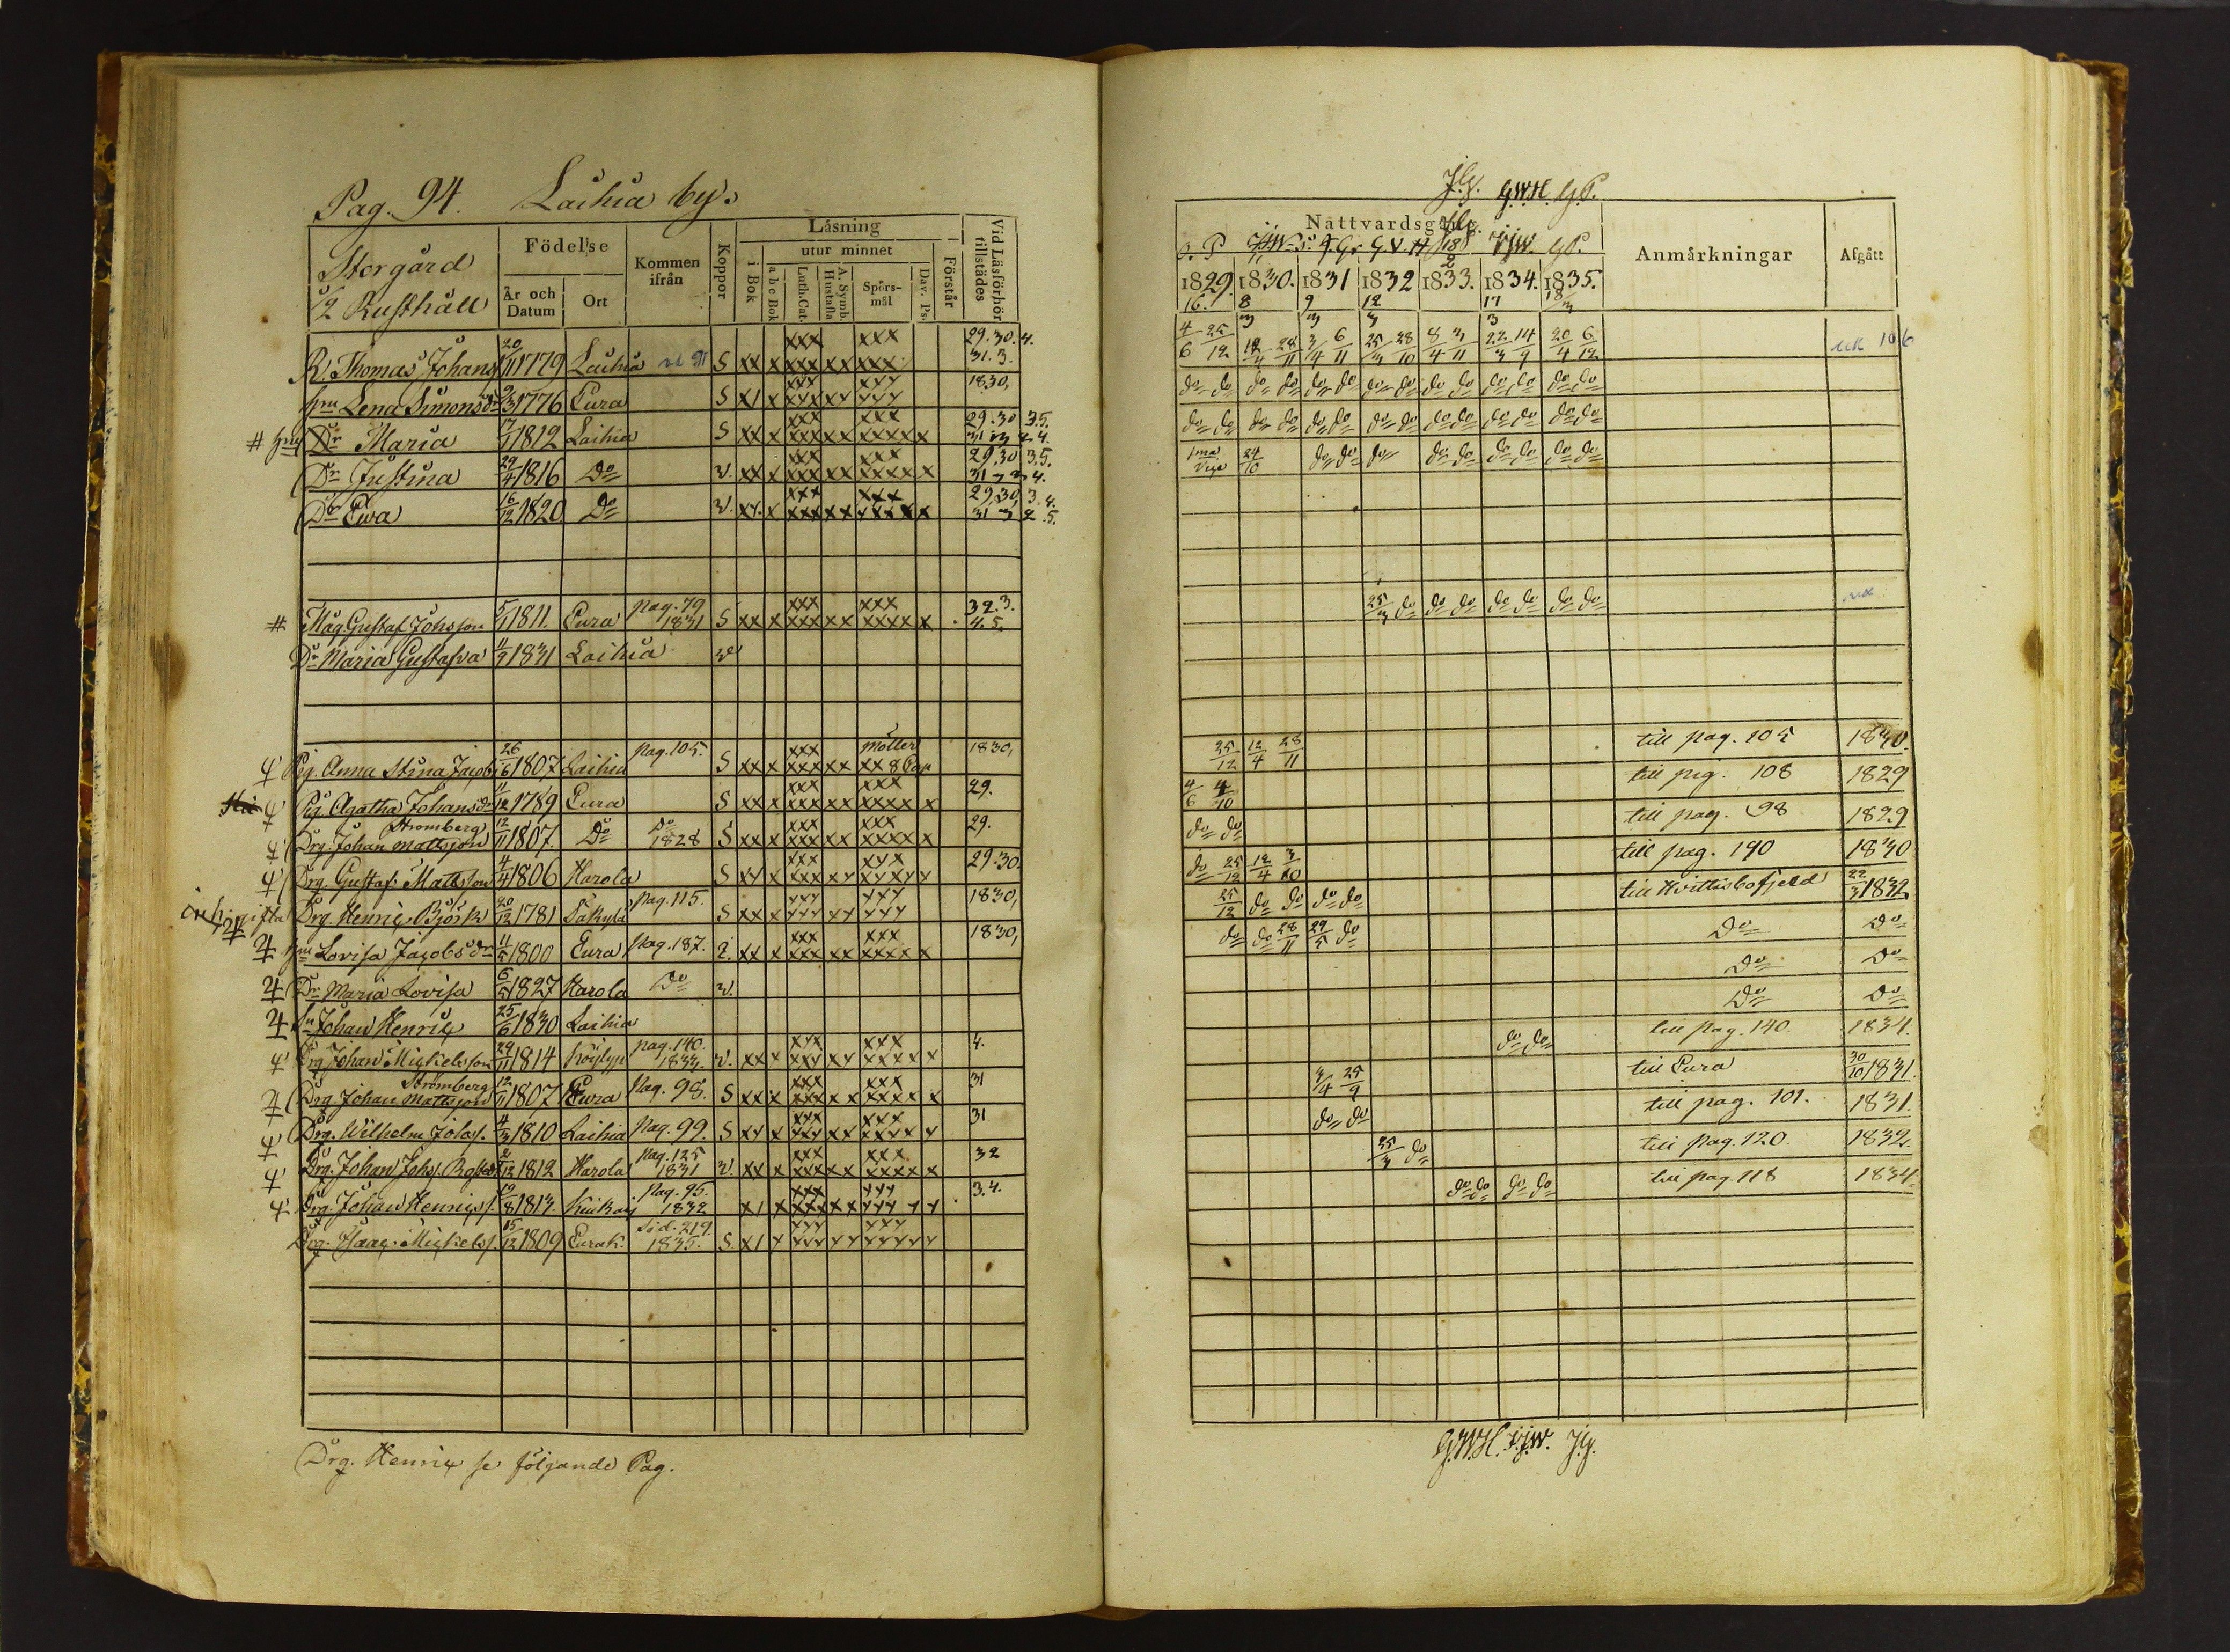 Pag. 94. Laihia by.
Storgård
1/2 Rusthåll
Födelse
År och Datum
Ort
Kommen ifrån
Koppor
Läsning
i Bok
utur minnet
a b c Bok
Luth. Cat.
A. Symb. Hustafla
Spörs-mål
Dav. Ps.
Förstår
Vid Läsförhör tillstädes
R. Thomas Johans 20/11 1779 Laihia S xx x xxx xxxxx xx xxx xxxxx 29.30.4. 31.3.
hu Lena Simonsdr 9/3 1776 Eura S x/ x xxx xxx xx xxx xxx 1830,
# Dr Maria 17/1 1812 Laihia S xx x xxx xxx xx xxx xxxx x 29.30 3.5. 31 3 2 4.
Dr Justina 29/4 1816 Do v. xx x xxx xxx xx xxx xxxx x 29.30 3.5.
Dr Ewa 16/12 1820 Do v. xx x xxx xxx xx xxx xxxx x 29,30, 3.4. 31 3 2.5.
# Måg. Gustaf Johsson 5/1 1811. Eura pag. 79 1831 S xx x xxx xxx xx xxx xxxx x 32.3. 4.5.
Dr Maria Gustafva 11/9 1831 Laihia v
Pig. Anna Stina Jacobs 26/6 1807 Laihia pag. 105. S xx x xxx xxx xx Möller xx 8 Cap 1830,
Pig. Agatha Johansdr 11/12 1789 Eura S xx x xxx xxx xx xxx xxxx x 29.
Drg. Johan Mattsson Stromberg 12/11 1807. Do Do 1828 S xx x xxx xxx xx xxx xxxx x 29.
Drg. Gustaf Mattsson 4/4 1806 Harola S xx x xxx xxx xx xxx xxxxx 29.30.
Drg. Henric Björk 20/12 1781 Säkylä pag. 115. S xx x xxx xxx xx xxx xxx 1830,
hu Lovisa Jacobsdr 11/5 1800 Eura pag. 187. xx x xxx xxx xx xxx xxxx x 1830,
Dr Maria Lovisa 6/5 1827 Harola Do v.
Sn Johan Henric 25/6 1830 Laihia
Drg Johan Mickelsson 29/11 1814 Köylyp pag. 140. 1833. v. xx x xxx xxx xx xxx xxxx x 4.
Drg Johan Mattsson Strömberg 12/11 1807 Eura Pag. 98. S xx x xxx xxx xx xxx xxxx x 31
Drg. Wilhelm Johss. 4/3 1810 Laihia Pag. 99. S xx x xxx xxx xx xxx xxxx x 31
Drg. Johan Johss. 2/12 1812 Harola Pag. 125 1831 v. xx x xxx xxx xx xxx xxxxx 32
Drg. Johan Henricss. 19/8 1813. Kiukais Pag. 95. 1832 x/ x xxx xxx xx xxx xxx x x 3.4.
Drg. Isaac Mickelss. 15/12 1809 Eurak. Sid. 219. 1835. S. x/ x xxx xxx xx xxx xxxxx
Drg. Henric se följande Pag.
J.G. G.W.H. G.P.
Nattvardsgång.
Anmärkningar
Afgått
1829. 1830. 1831 1832 1833. 1834. 1835.
16. 8 9 12 17 18/3
4/6 25/12 12/4 28/11 3/4 6/11 25/3 28/10 8/4 3/11 22/3 14/9 20/4 6/12 106
do do do do do do do do do do do do do do
do do do do do do do do do do do do do do
1ma 24/10 do do do do do do do do do
25/3 do do do do do do do
25/12 12/4 28/11 till pag. 105 1830.
4/6 4/10 till pag. 108 1829
do do till pag. 98 1829
do 25/12 12/4 3/10 till pag. 190 1830
25/12 do do do do till Hvittisbofjerd 22/3 1832.
do do 28/11 29/5 do Do Do
Do Do
Do Do
do do till Pag. 140. 1834.
3/4 25/9 till Eura 30/10 1831.
do do till pag. 101. 1831.
25/3 do till pag. 120. 1832.
do do do do till pag. 118 1834.
G.W.H. J.G.